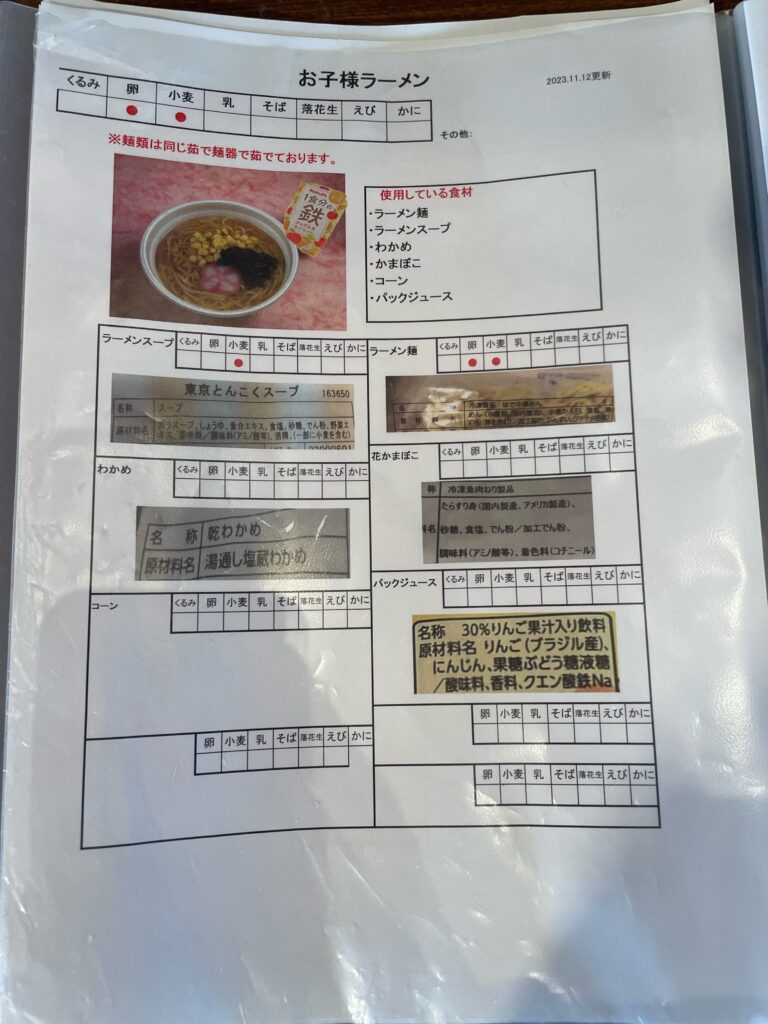 お子様ラーメン
2023.11.12更新
くるみ 卵 小麦 乳 そば 落花生 えび かに
● ●
その他:
※麺類は同じ茹で麺器で茹でております。
1食分の
鉄
使用している食材
・ラーメン麺
・ラーメンスープ
・わかめ
・かまぼこ
・コーン
・パックジュース
ラーメンスープ
くるみ 卵 小麦 乳 そば 落花生 えび かに
●
東京とんこくスープ 163650
名称 スープ
原材料名 しょうゆ、魚介エキス、食塩、砂糖、でん粉、野菜エ
キス、香辛料/調味料(アミノ酸等)、酒精、(一部に小麦を含む)
ラーメン麺
くるみ 卵 小麦 乳 そば 落花生 えび かに
● ●
冷凍食品 ゆで中華めん
わかめ
くるみ 卵 小麦 乳 そば 落花生 えび かに
名称 乾わかめ
原材料名 湯通し塩蔵わかめ
花かまぼこ
くるみ 卵 小麦 乳 そば 落花生 えび かに
称 冷凍魚肉ねり製品
たらすり身(国内製造、アメリカ製造)、
料名 砂糖、食塩、でん粉/加工でん粉、
調味料(アミノ酸等)、着色料(コチニール)
コーン
くるみ 卵 小麦 乳 そば 落花生 えび かに
パックジュース
くるみ 卵 小麦 乳 そば 落花生 えび かに
名称 30%りんご果汁入り飲料
原材料名 りんご(ブラジル産)、
にんじん、果糖ぶどう糖液糖
/酸味料、香料、クエン酸鉄Na
卵 小麦 乳 そば 落花生 えび かに
卵 小麦 乳 そば 落花生 えび かに
卵 小麦 乳 そば 落花生 えび かに